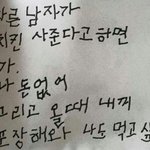 다른 남자가
치킨 사준다고 하면
가.
나 돈 없어
그리고 올때 내꺼
포장해와 나도 먹고 싶